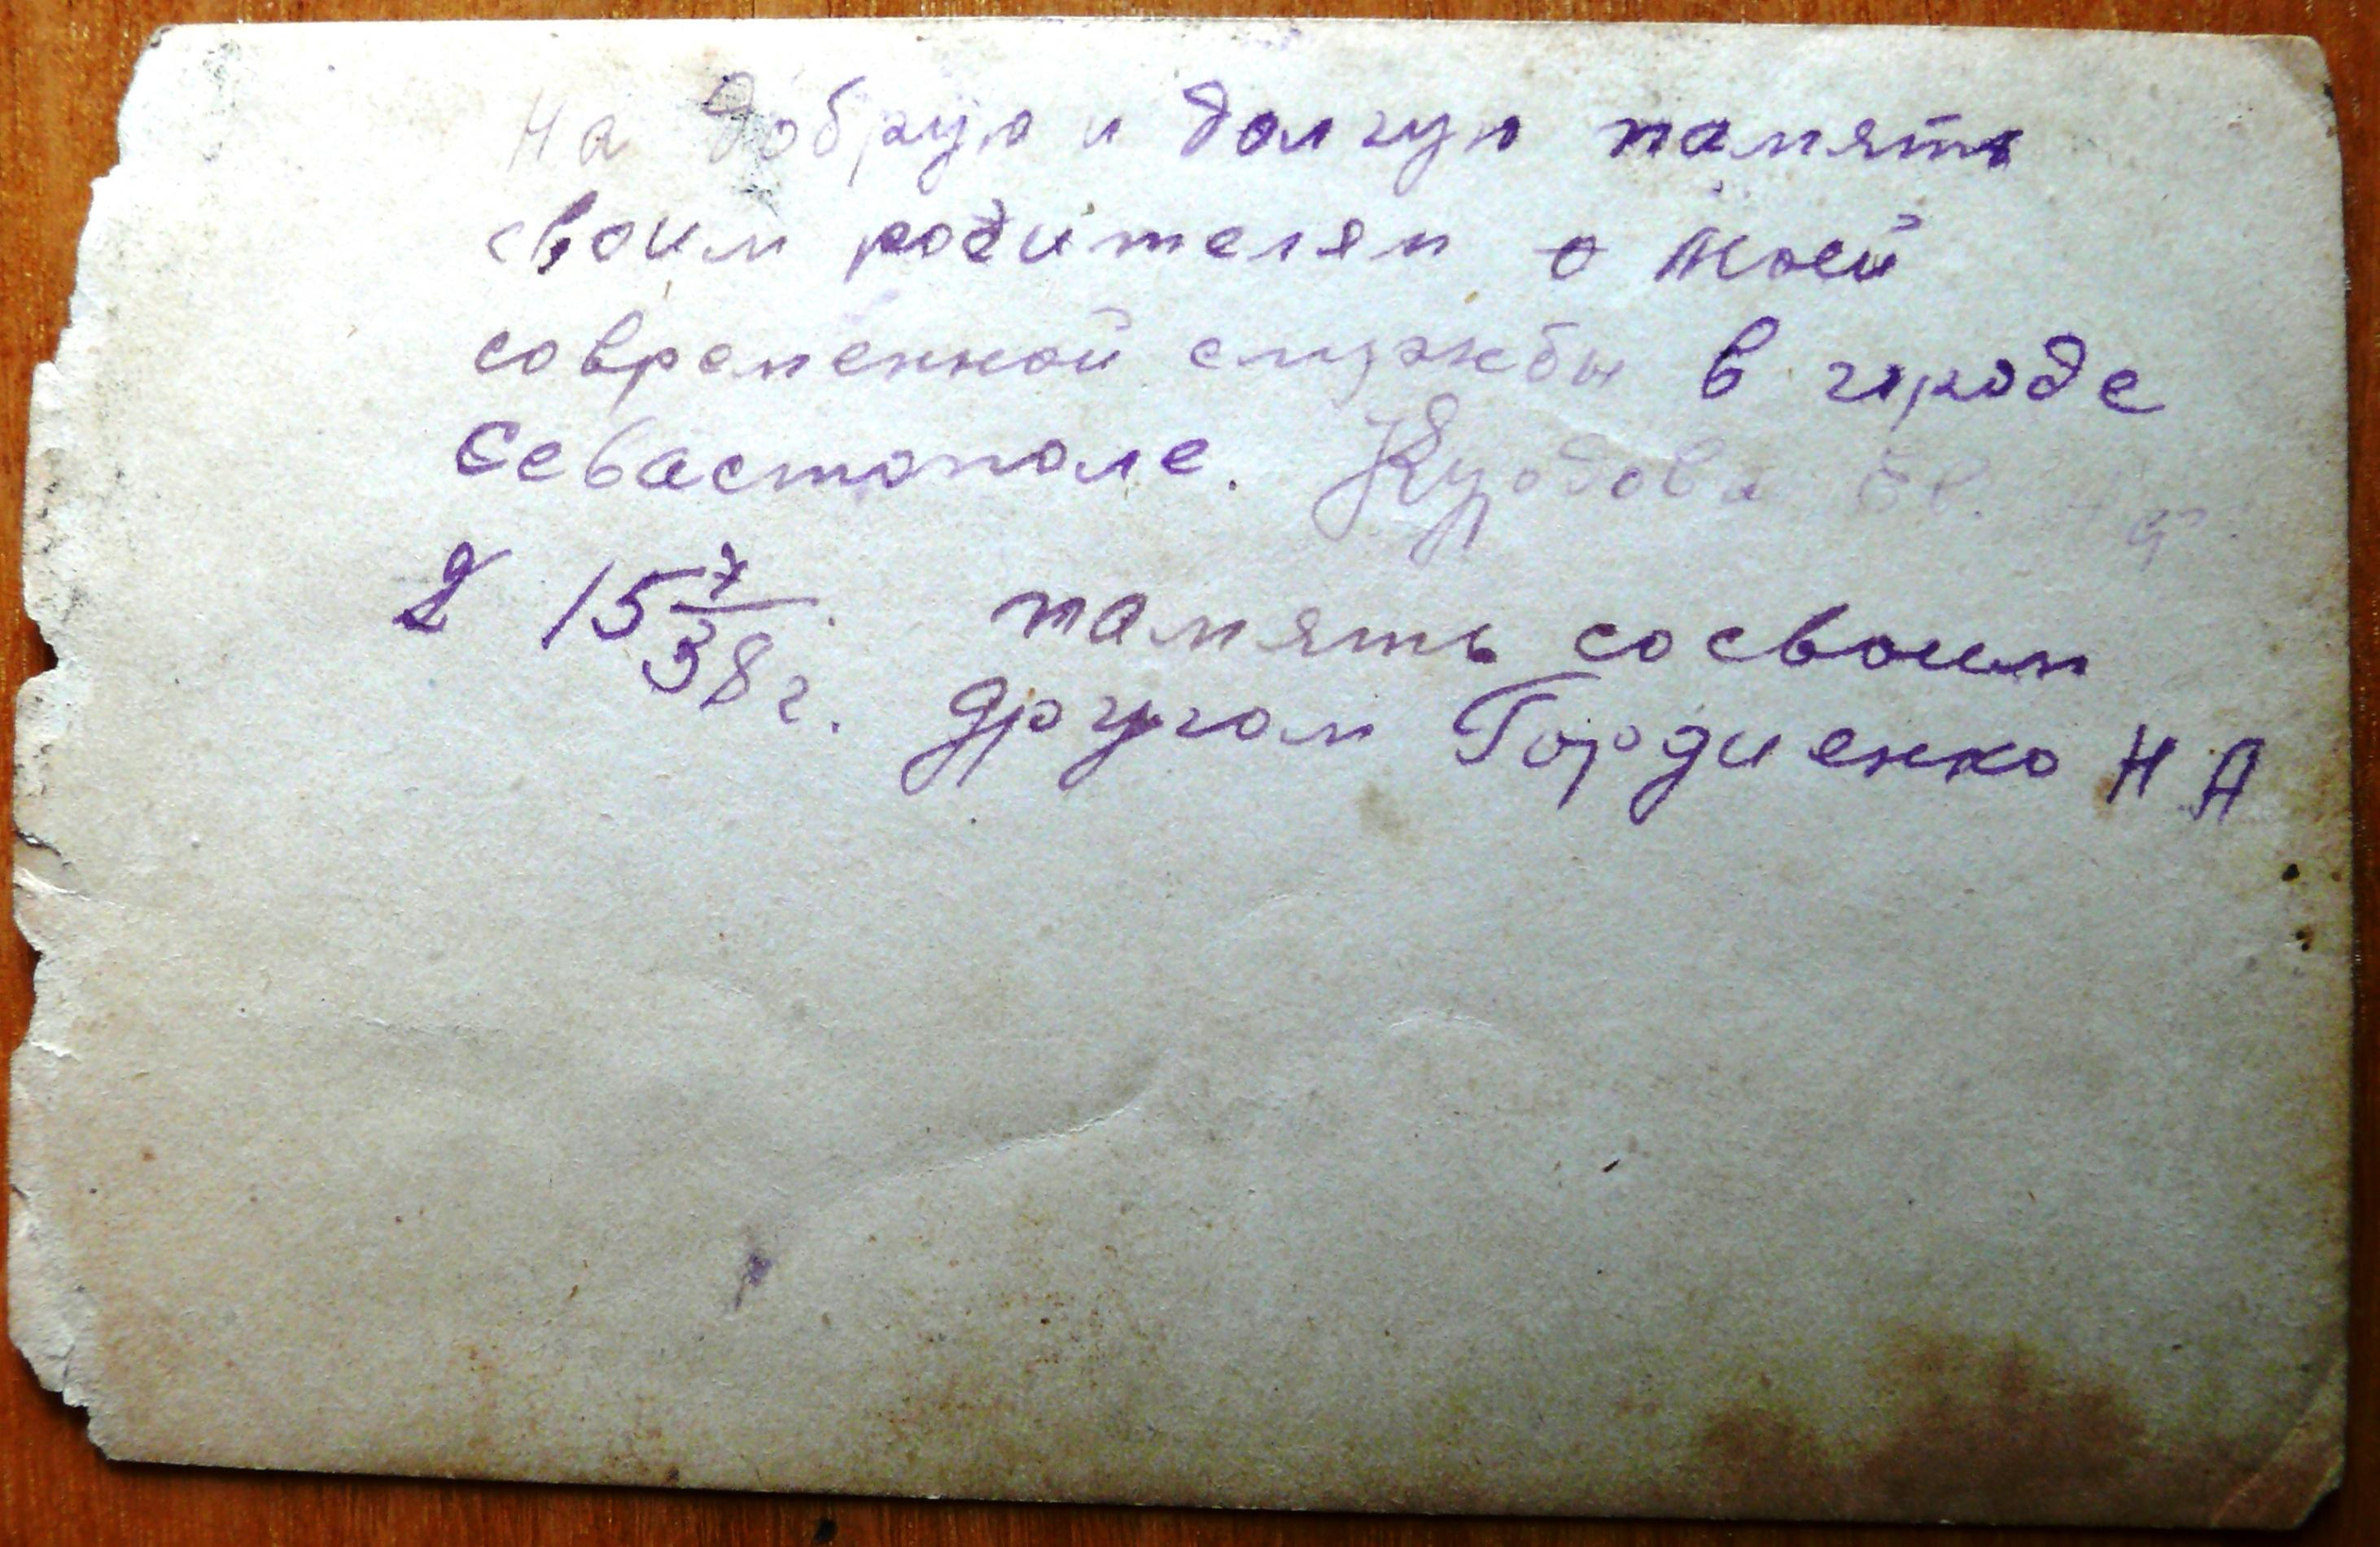 На добрую и долгую память
своим родителям о моей
современной службы в городе
Севастополе.
15 7/38 г. память со своим
другом Гордиенко Н А